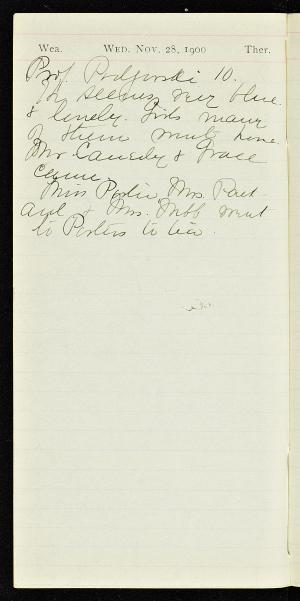 Wea. WED. NOV. 28, 1900 Ther.
Prof. Podgorski 10.
It seems very blue
& lonely. Girls many
of them went home.
Mr Canedy & Grace
came.
Miss Porter, Mrs.
and & Mrs. Webb went
to Porters to tea.